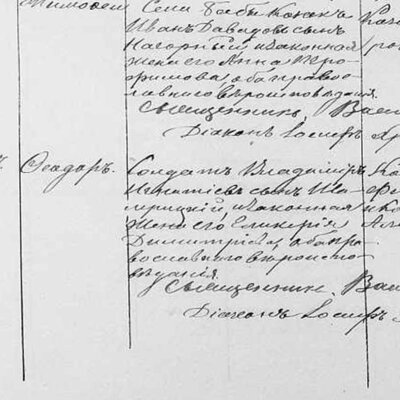 Тимофей
Села Бабы Козак
Иван Давидовъ сынъ
Нагорный и законная
жена его Анна Тро-
фимова, оба право-
славнаго вѣроисповѣданія.
Священникъ Васи
Діаконъ Іосифъ
Ѳеодоръ.
Солдатъ Владиміръ
Игнатіевъ сынъ
и законная
жена его Гликерія
Димитріева, оба пра-
вославнаго вѣроиспо-
вѣданія.
Священникъ Васи
Діаконъ Іосифъ